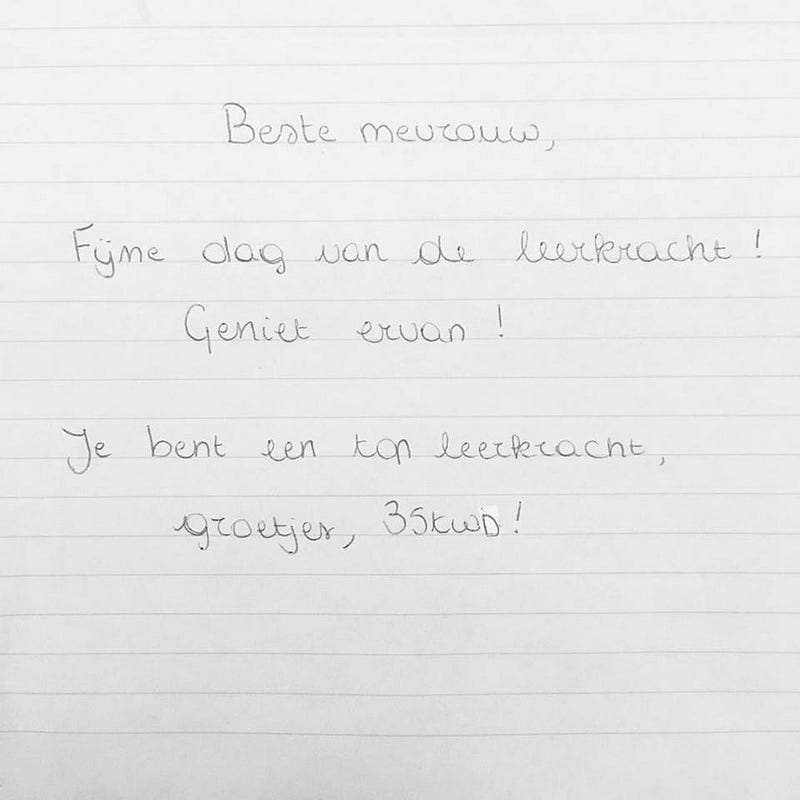 Beste mevrouw,
Fijne dag van de leerkracht!
Geniet ervan!
Je bent een top leerkracht,
groetjes, 3STWD!